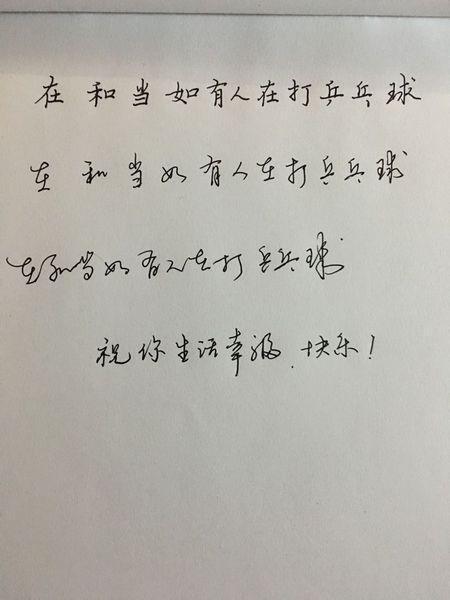 在和当如有人在打乒乓球
在和当如有人在打乒乓球
在和当如有人在打乒乓球
祝你生活幸福、快乐！